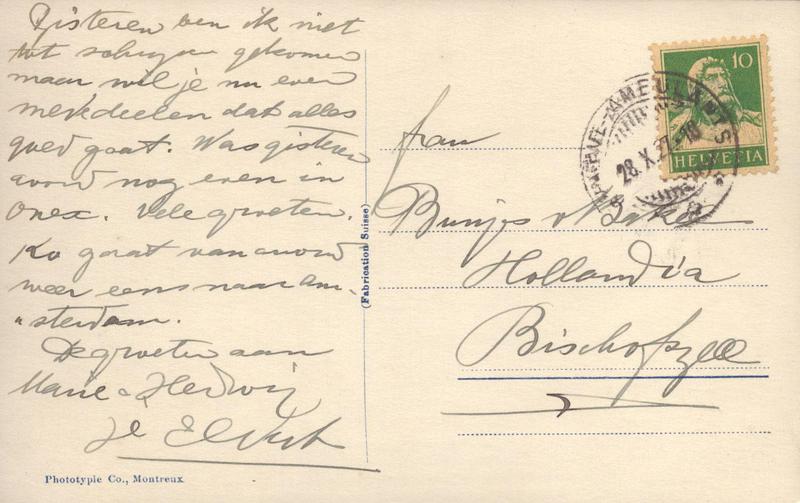 Gisteren ben ik niet
tot schrijven gekomen
maar wil je nu even
meddeelen dat alles
goed gaat. Was gisteren
avond nog even in
Onex. Vele groeten.
Ko gaat van avond
weer eens naar Am-
"sterdam.
De groeten aan
Marie & Hedwig
Je
Phototypie Co., Montreux
(Fabrication Suisse)
10
HELVETIA
28.X.27-18
frau
Bunjes v
Hollandia
Bischofszell